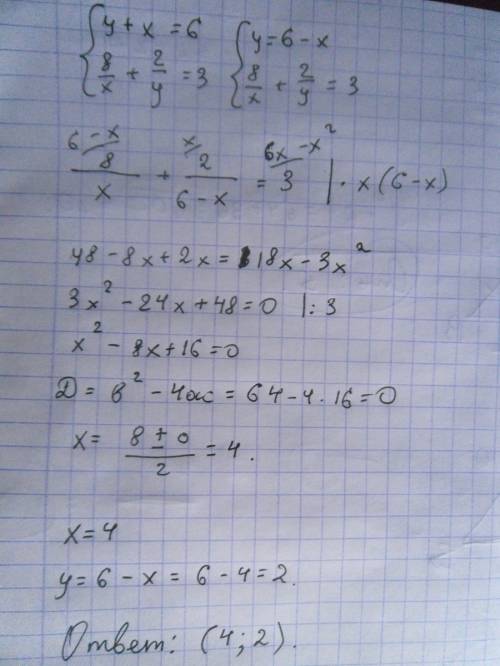 { y + x = 6 { y = 6 - x
{ 8/x + 2/y = 3 { 8/x + 2/y = 3
6-x/ 8/x + x/ 2/(6-x) = 6x-x²/ 3 | · x(6-x)
48 - 8x + 2x = 18x - 3x²
3x² - 24x + 48 = 0 |: 3
x² - 8x + 16 = 0
D = b² - 4ac = 64 - 4 · 16 = 0
x = (8 ± 0)/2 = 4.
x = 4
y = 6 - x = 6 - 4 = 2.
Ответ: (4; 2).